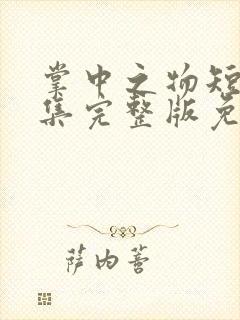 掌中之物短
集完整版免
萨内菩